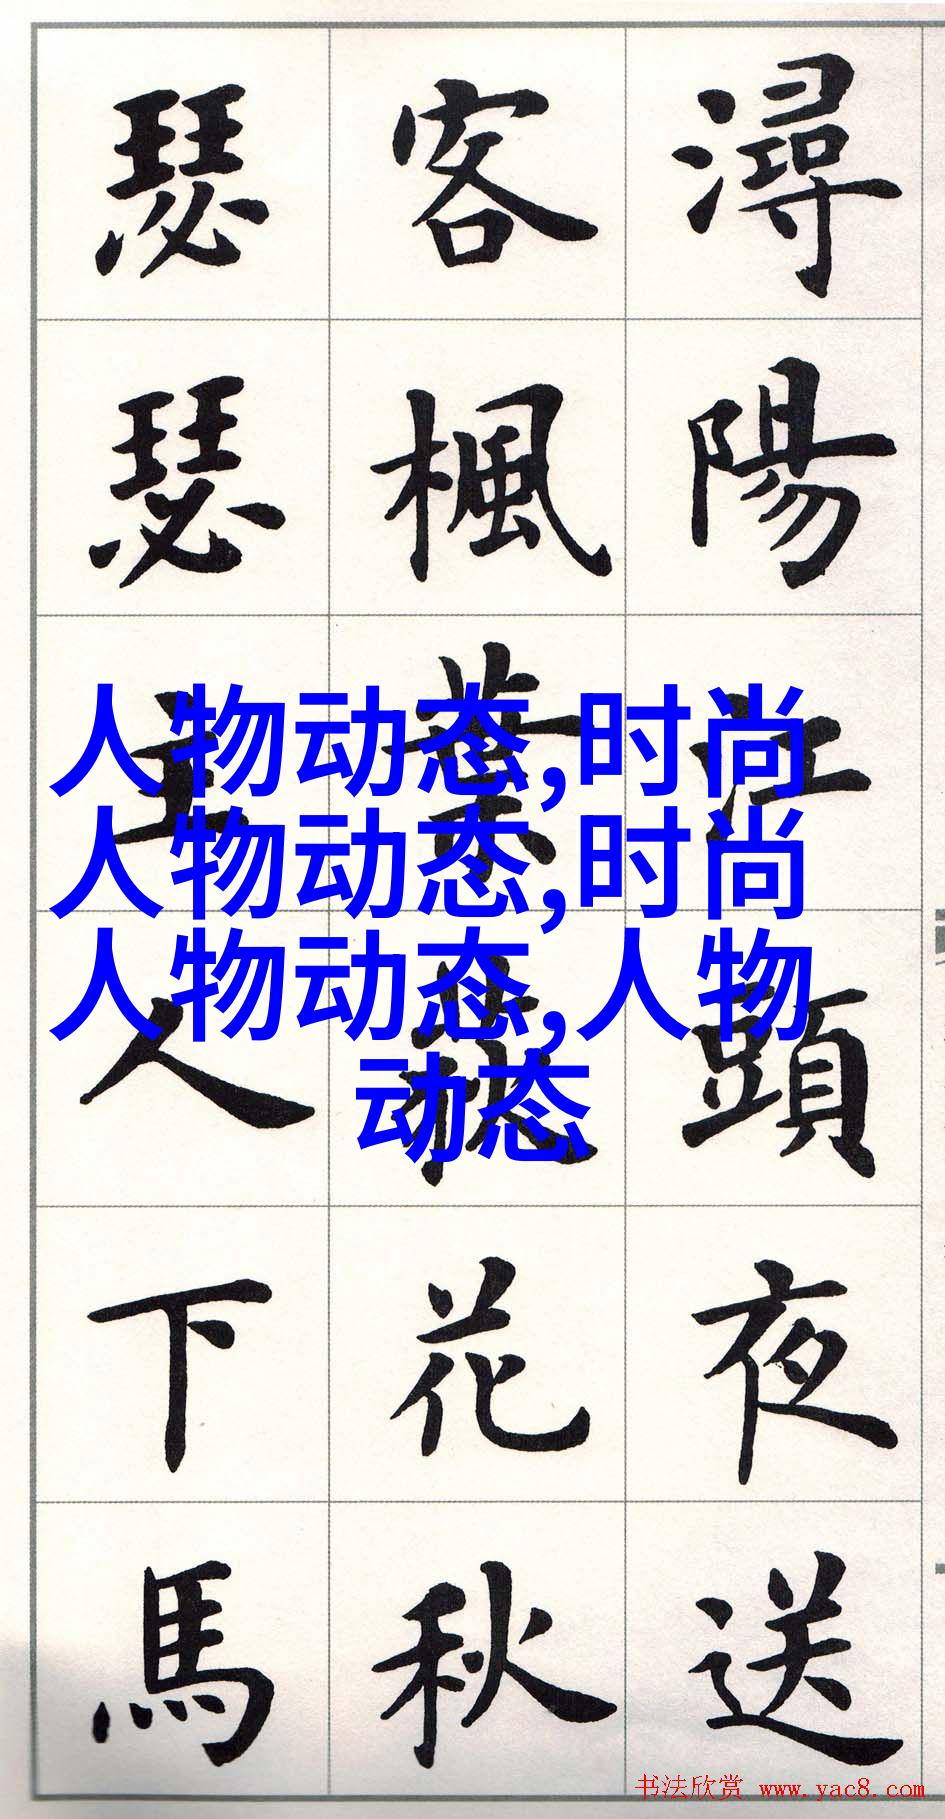 潯陽江頭夜送
客楓葉荻花秋
瑟瑟主人下馬
人物动态,时尚
人物动态,时尚
人物动态,人物
动态
书法欣赏 www.yac8.com